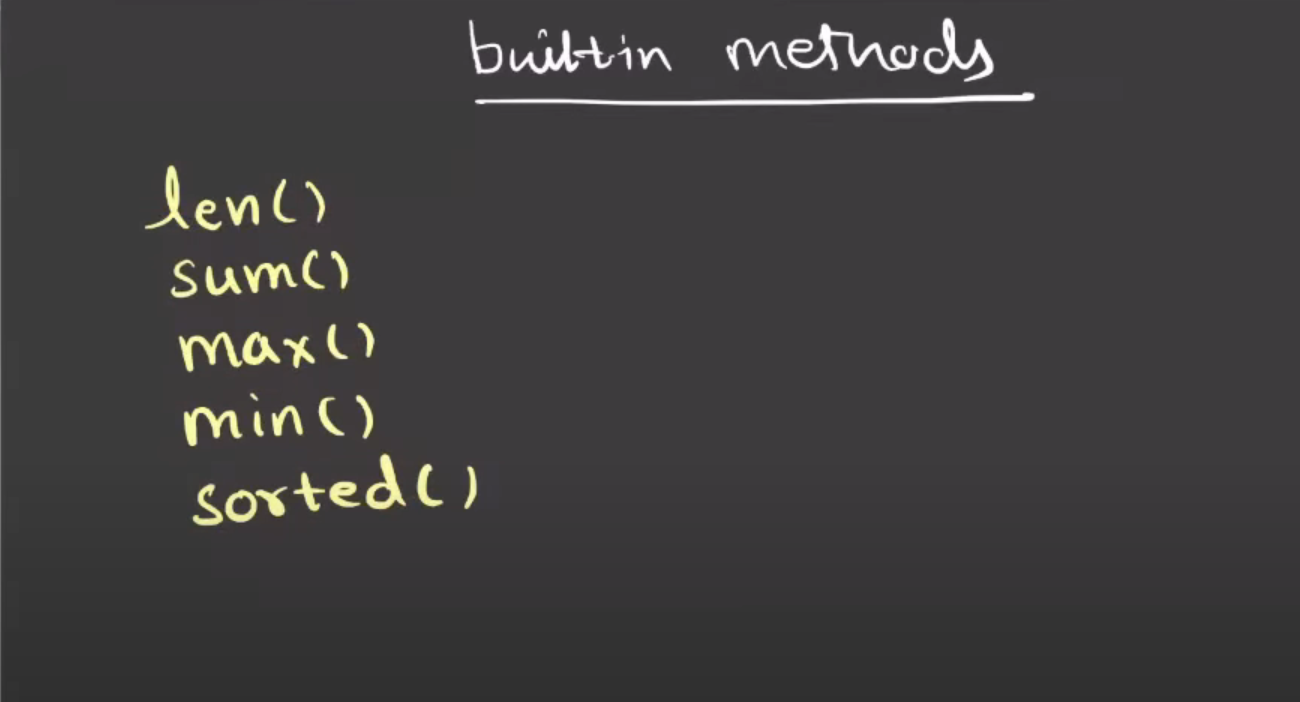 builtin methods
len()
sum()
max()
min()
sorted()